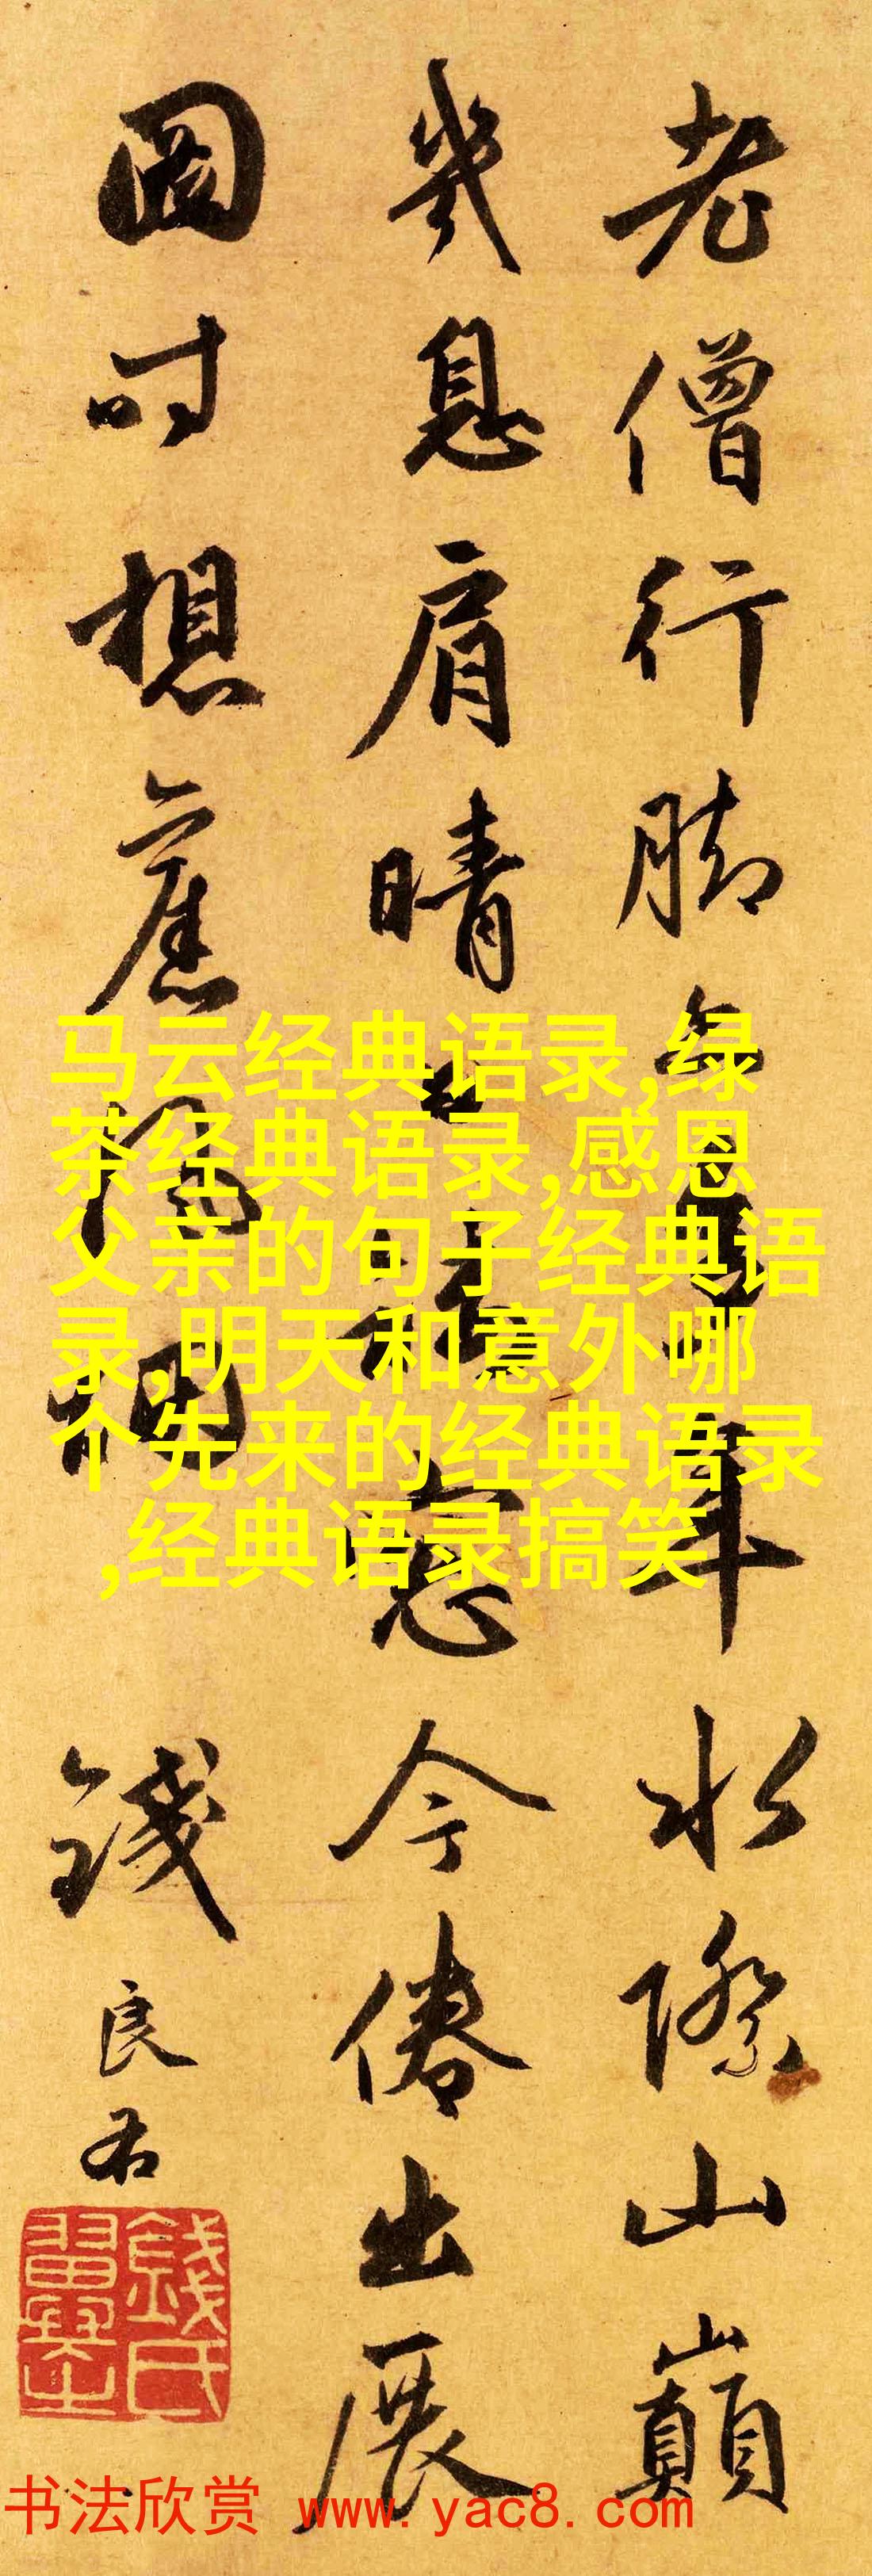 老僧行脚年水際山巔
幾息肩晴窓今倦出展
圖时想舊風烟
錢良右
錢氏翼之
马云经典语录,绿
茶经典语录,感恩
父亲的句子经典语
录,明天和意外哪
个先来的经典语录
,经典语录搞笑
书法欣赏 www.yac8.com